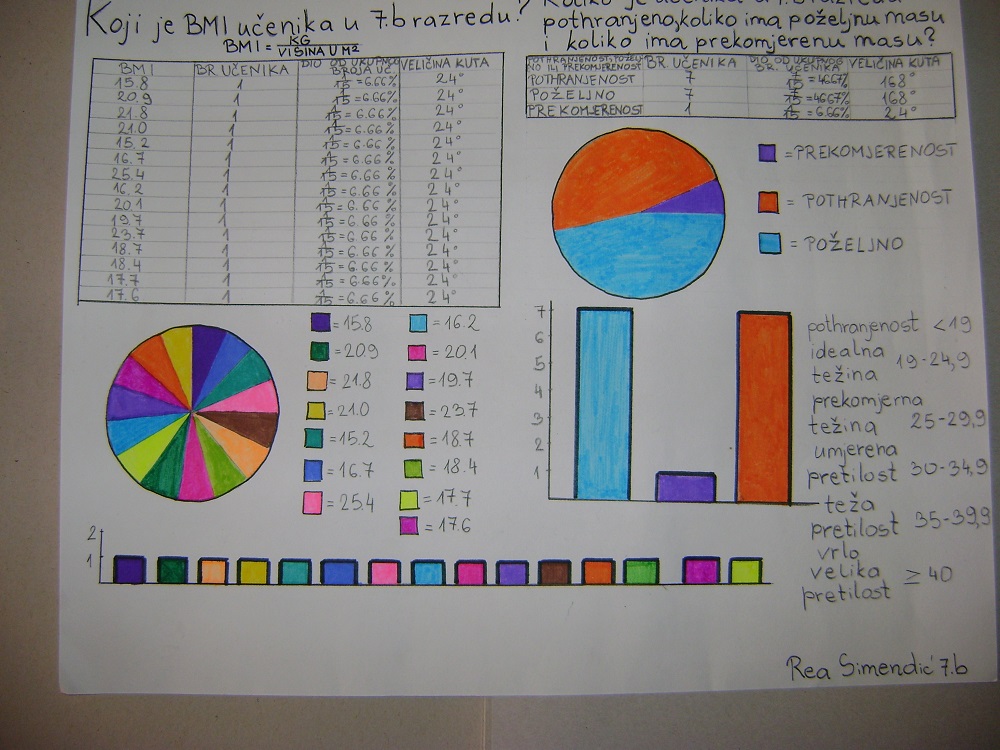 Koji je BMI učenika u 7.b razredu?
BMI = KG
VISINA U M²
BMI BR UČENIKA DIO OD UKUPNOG BROJA UČ. VELIČINA KUTA
15.8 1 1/15 = 6.66% 24°
20.9 1 1/15 = 6.66% 24°
21.8 1 1/15 = 6.66% 24°
21.0 1 1/15 = 6.66% 24°
15.2 1 1/15 = 6.66% 24°
16.7 1 1/15 = 6.66% 24°
25.4 1 1/15 = 6.66% 24°
16.2 1 1/15 = 6.66% 24°
20.1 1 1/15 = 6.66% 24°
19.7 1 1/15 = 6.66% 24°
23.7 1 1/15 = 6.66% 24°
18.7 1 1/15 = 6.66% 24°
18.4 1 1/15 = 6.66% 24°
17.7 1 1/15 = 6.66% 24°
17.6 1 1/15 = 6.66% 24°
= 15.8 = 16.2
= 20.9 = 20.1
= 21.8 = 19.7
= 21.0 = 23.7
= 15.2 = 18.7
= 16.7 = 18.4
= 25.4 = 17.7
= 17.6
2
1
Koliko je učenika u 7.b razredu
pothranjeno, koliko ima poželjnu masu
i koliko ima prekomjerenu masu?
BR UČENIKA DIO OD UKUPNOG BR. UČENIKA VELIČINA KUTA
POTHRANJENOST 7 7/15 = 46.67% 168°
POŽELJNO 7 7/15 = 46.67% 168°
PREKOMJERENOST 1 1/15 = 6.66% 24°
= PREKOMJERENOST
= POTHRANJENOST
= POŽELJNO
7
6
5
4
3
2
1
pothranjenost <19
idealna
težina 19-24,9
prekomjerna
težina 25-29,9
umjerena
pretilost 30-34,9
teža
pretilost 35-39,9
vrlo
velika ≥ 40
pretilost
Rea Simendić 7.b